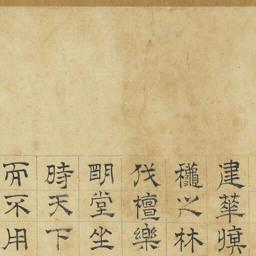 建華旗
穐之林
伐檀樂
明堂坐
時天下
而不用